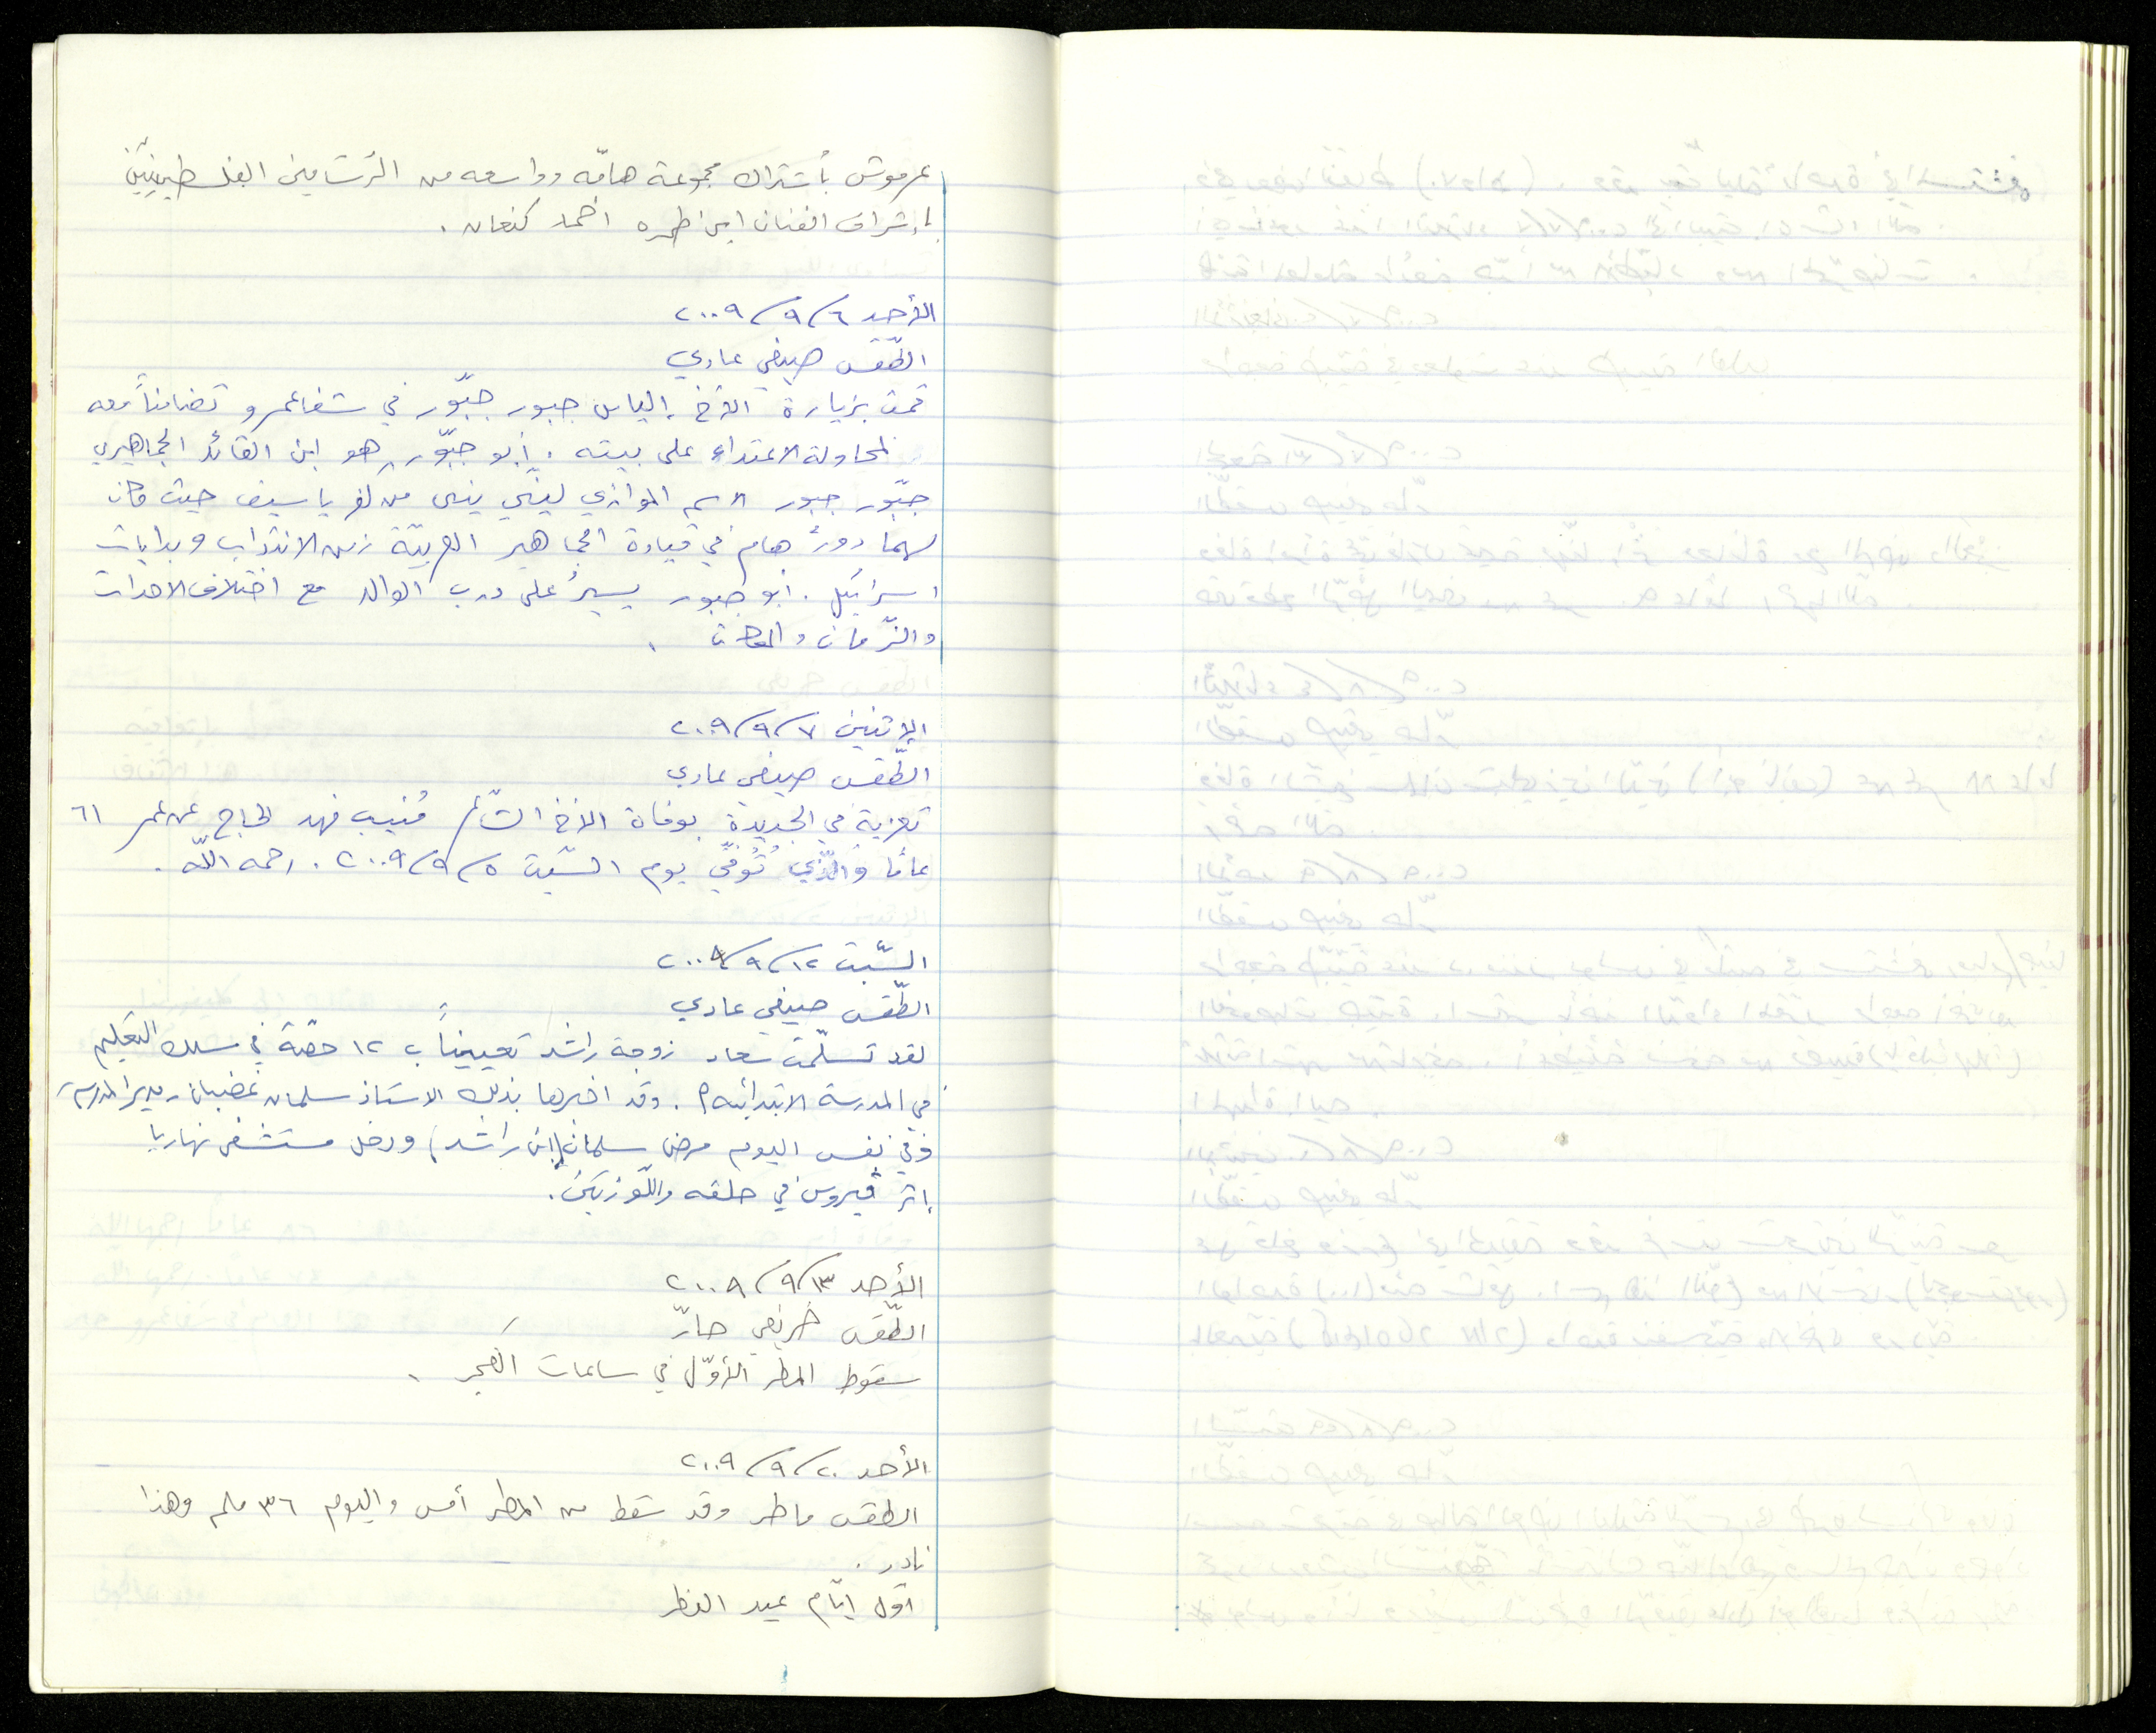 عرموش بأشتراك مجموعة هامّه وواسعه من الرّسّامين الفلسطينيّين
بإشراف الفنان ابن طمره احمد كنعان .
الأحد ٦/٩/٢٠٠٩
الطّقس صيفي عادي
قمت بزيارة الأخ إلياس جبور جبّور في شفاعمرو تضامناً معه
لمحاولة الاعتداء على بيته . أبو جبّور هو ابن القائد الجماهيري
جبّور جبور الاسم الموازي ليني يني من كفر ياسيف حيث كان
لهما دورٌ هام في قيادة الجماهير العربيّة زمن الانتداب وبدايات
اسرائيل . أبو جبور يسيرُ على درب الوالد مع اختلاف الاحداث
والزّمان والمكان .
الإثنين ٧/٩/٢٠٠٩
الطّقس صيفي عادي
تعزية في الجديدة بوفاة الاخ الشّاعر مُنيب فهد الحاج عن عمر ٦١
عامًا والّذي تُوُفّي يوم السّبت ٥/٩/٢٠٠٩ . رحمه اللّه .
السّبت ١٢/٩/٢٠٠٩
الطّقس صيفي عادي
لقد تسلّمت سعاد زوجة راشد تعييناً ب ١٢ حصّة في سلك التّعليم
في المدرسة الابتدائيه . وقد اخبرها بذلك الاستاذ سلمان غضبان مدير المدرسه
وفي نفس اليوم مرض سلمان (ابن راشد) ودخل مستشفى نهاريا
إثر ڤيروس في حلقه واللّوزتين .
الأحد ١٣/٩/٢٠٠٩
الطّقس خريفي حارّ
سقوط المطر الأوّل في ساعات الفجر .
الأحد ٢٠/٩/٢٠٠٩
الطقس ماطر وقد سقط من المطر أمس واليوم ٣٦ ملم وهذا
نادر .
اوّل ايّام عيد الفطر